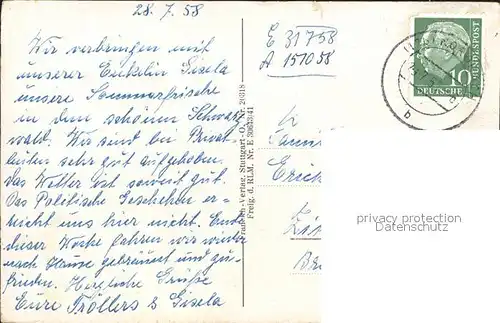 28.7.58
Wir verbringen mit
unserer Enkelin Gisela
unsere Sommerfrische
in dem schönen Schwarz
wald. Wir sind bei Privat-
leuten sehr gut aufgehoben.
Das Wetter ist soweit gut.
Das Politische Geschehen er-
reicht uns hier nicht. Ende
dieser Woche fahren wir wieder
nach Hause gebräunt und zu-
frieden. Herzliche Grüße
Eure Tröllers & Gisela
Verlag, Stuttgart-O., Nr. 20318
Freig. d. RLM. Nr. E 39613/41
E 31758
A 151058
10
DEUTSCHE
BUNDESPOST
b
Fami
Erich
privacy protection
Datenschutz